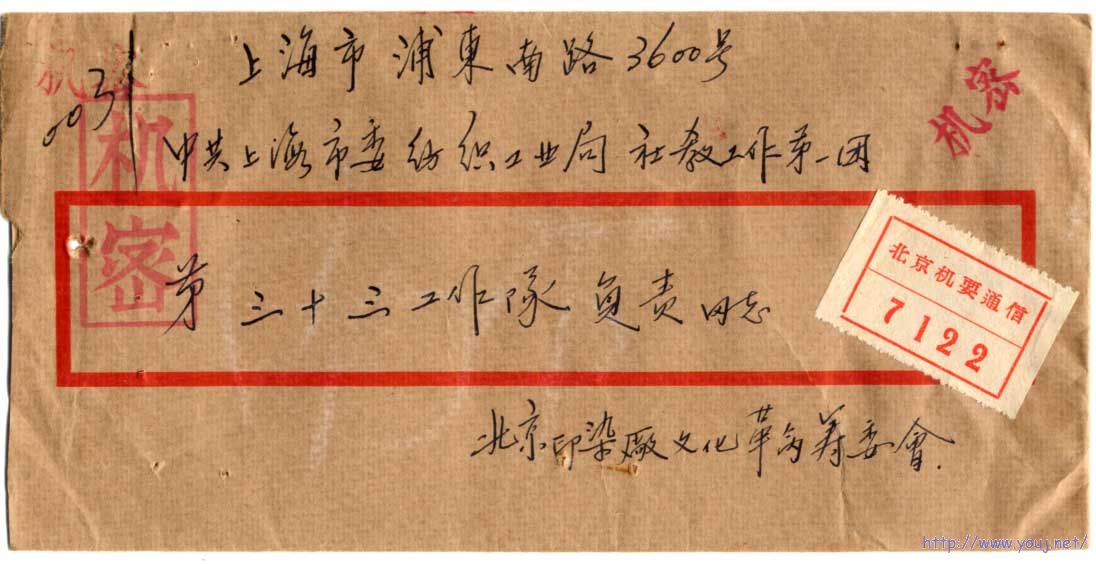 机密
机密
机密
0031
上海市 浦東南路3600号
中共上海市委纺织工业局 社教工作第一团
第三十三工作隊 負责同志
北京机要通信
7122
北京印染廠文化革命筹委會
http://www.youj.net/